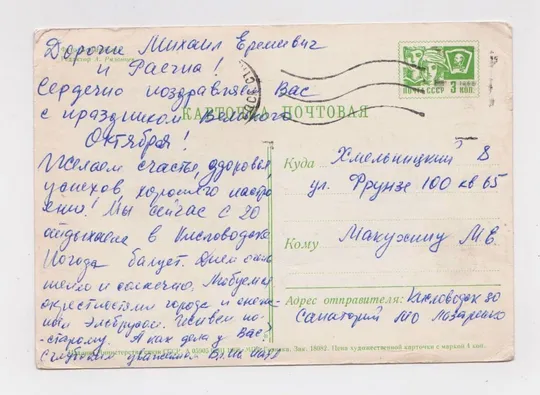 Дорогие Михаил Еремеевич
и Раечка!
Сердечно поздравляем Вас
с праздником Великого
Октября!
Желаем счастья, здоровья,
успехов, хорошего настро
ения! Мы сейчас с 20
отдыхаем в Кисловодске
Погода балует. Днем
и солнечно. Любуемся
окрестностями города и снеж
ным Эльбрусом. Живем по-
старому. А как дела у Вас?
С глубоким уважением
ПОЧТА СССР 3 КОП.
КАРТОЧКА ПОЧТОВАЯ
Куда Хмельницкий 8
ул. Фрунзе 100 кв 65
Кому Макухину М.Е.
Адрес отправителя: Кисловодск 30
Санаторий
Зак. 18082. Цена художественной карточки с маркой 4 коп.